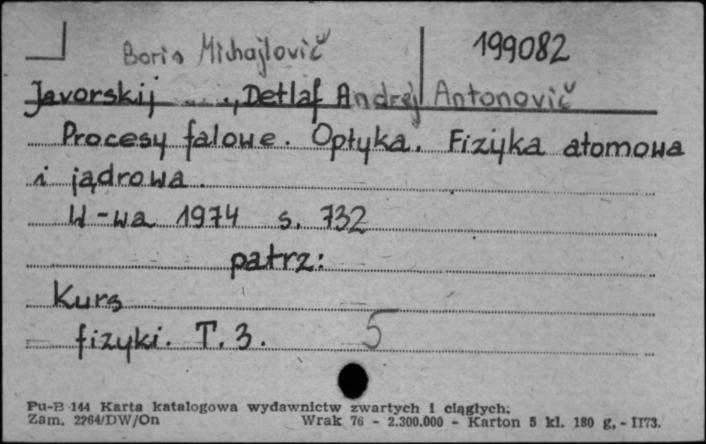 Boris Michajlovič 199082
Javorskij ..., Detlaf Andrej Antonovič
Procesy falowe. Optyka. Fizyka atomowa
i jądrowa.
W-wa 1974 s. 732
patrz:
Kurs
fizyki. T. 3. 5
Pu-B 144 Karta katalogowa wydawnictw zwartych i ciągłych.
Zam. 2264/DW/On Wrak 76 - 2.300.000 - Karton 5 kl. 180 g. - II73.